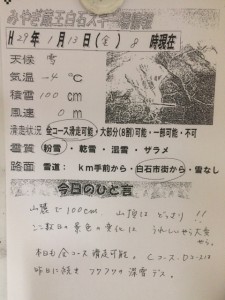 みやぎ蔵王白石スキー場情報
H 29年 1月13日(金) 8時現在
天候 雪
気温 -4℃
積雪 100cm
風速 0m
滑走状況 全コース滑走可能・大部分(8割)可能・一部可能・不可
雪質 粉雪・乾雪・湿雪・ザラメ
路面 雪道: km手前から・白石市街から・雪なし
今日のひと言
山麓で100cm 山頂は どっさり!!
ここ数日の 景色の変化は うれしいやら大変やら。
本日も 全コース 滑走可能。Cコース、
昨日に続き フワフワの 深雪デス。